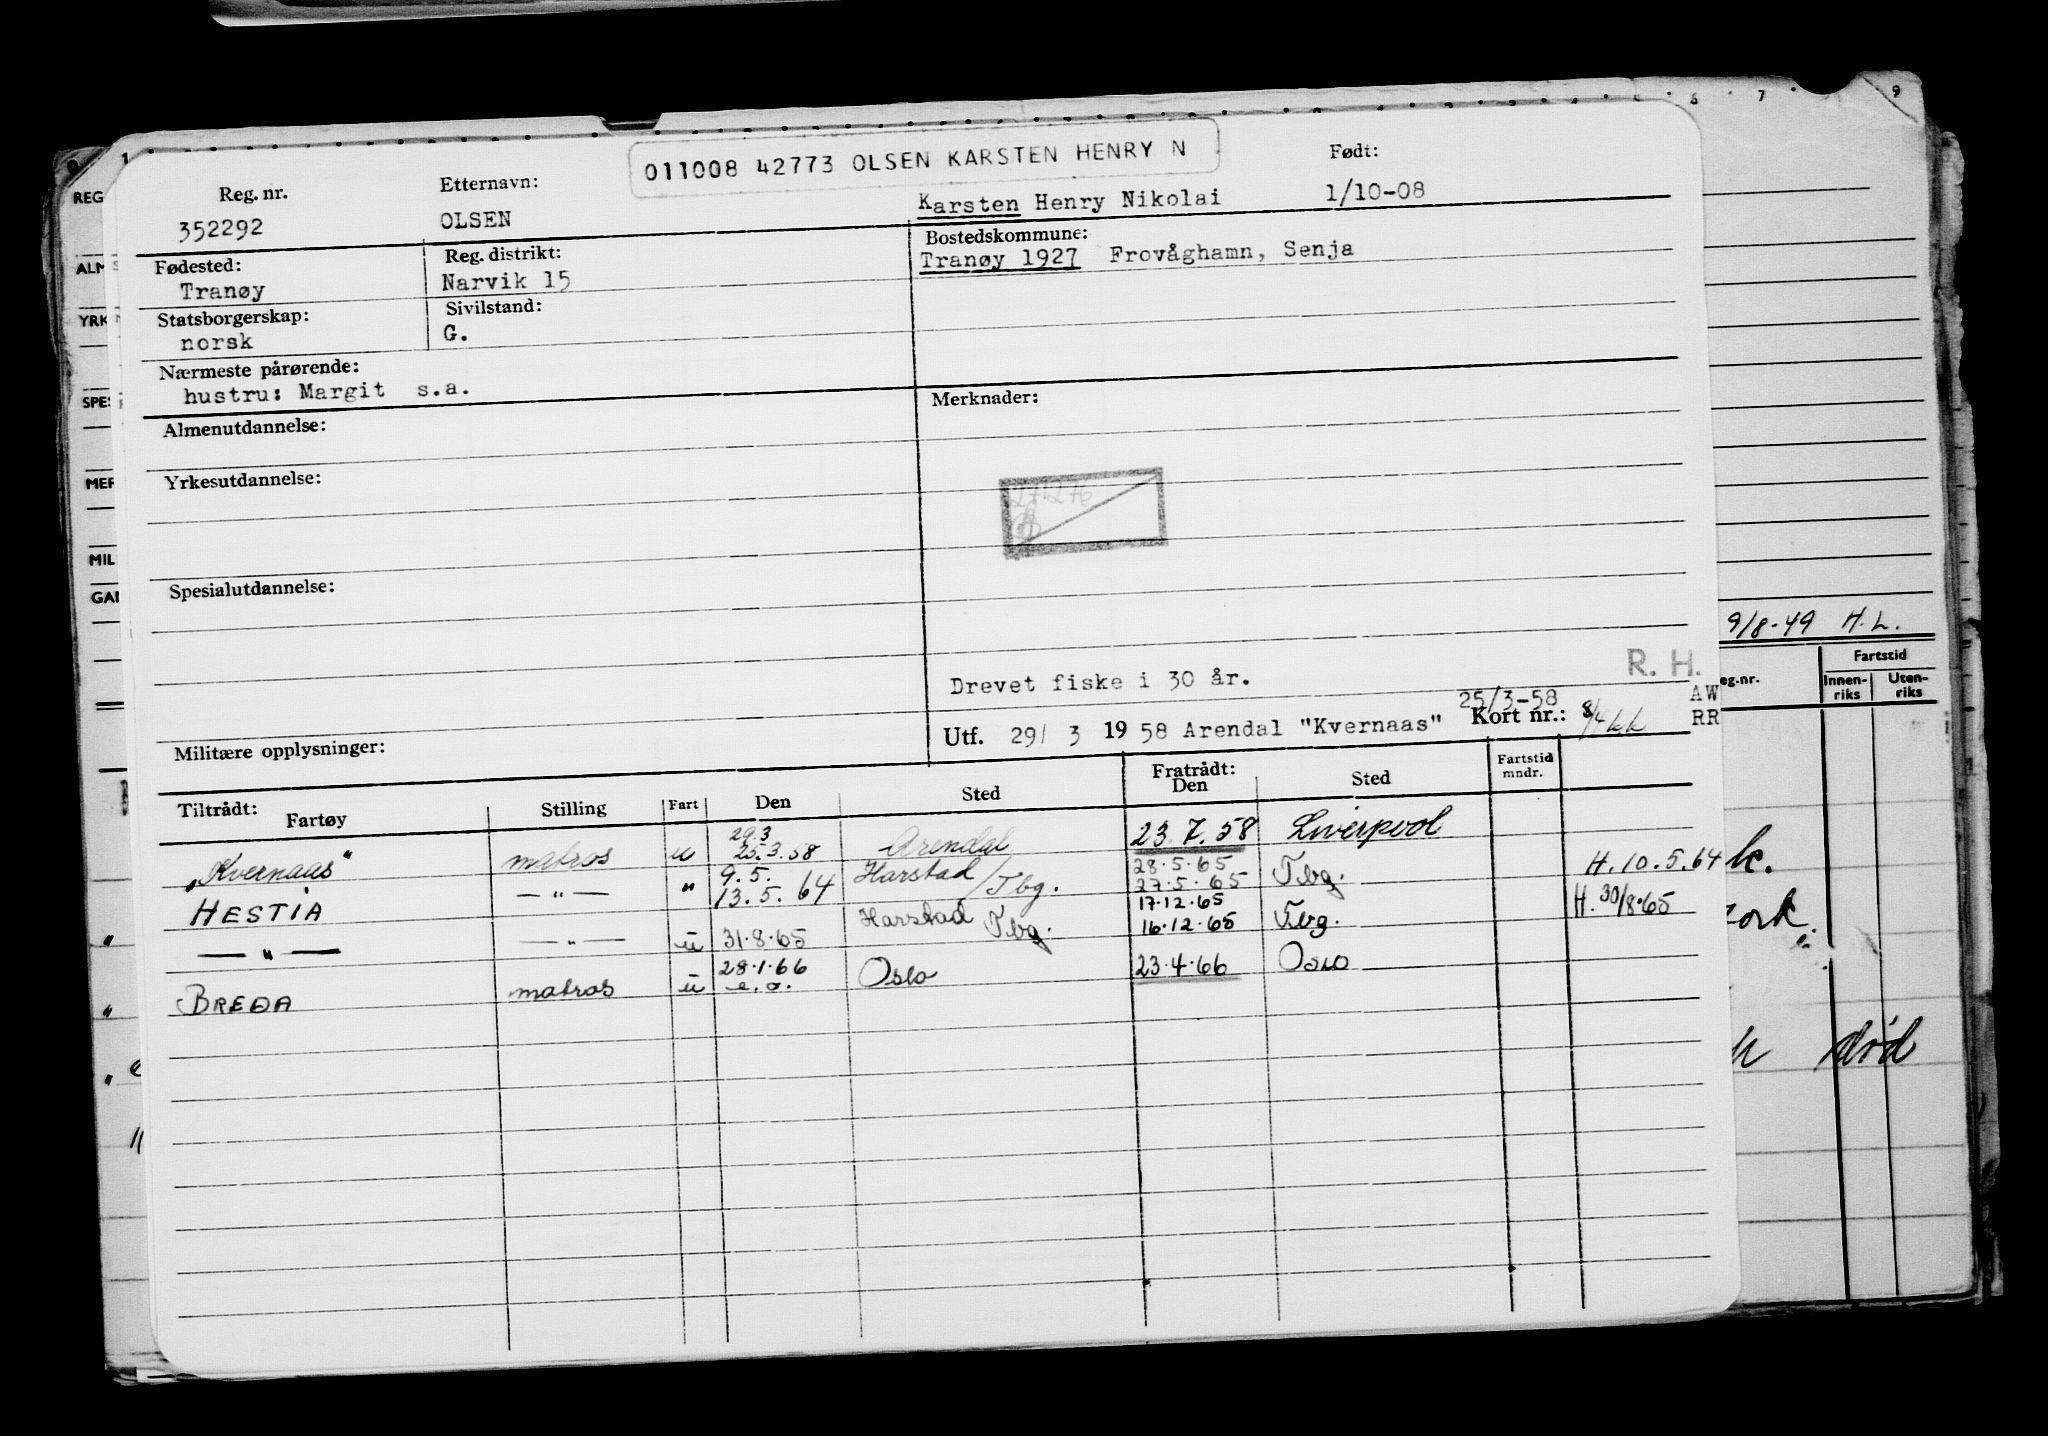 011008 42773 OLSEN KARSTEN HENRY N
Reg. nr. Etternavn: Født:
352292 OLSEN Karsten Henry Nikolai 1/10-08
Fødested: Reg. distrikt: Bostedskommune:
Tranøy Narvik 15 Tranøy 1927 Frovåghamn, Senja
Statsborgerskap: Sivilstand:
norsk G.
Nærmeste pårørende:
hustru: Margit s.a.
Almenutdannelse: Merknader:
Yrkesutdannelse:
Spesialutdannelse:
Drevet fiske i 30 år. R. H.
25/3-58 AW
Militære opplysninger: Utf. 29/ 3 1958 Arendal "Kvernaas" Kort nr.: RR
Tiltrådt: Fartøy Stilling Fart Den Sted Fratrådt: Den Sted Fartstid mndr.
29.3
"Kvernaas" matros u 25.3.58 Arendal 23.7.58 Liverpool
9.5. 28.5.65
HESTIA — " — " 13.5.64 Harstad/Tbg. 27.5.65 Tbg. H. 10.5.64
17.12.65
— " — — " — u 31.8.65 Harstad Tbg. 16.12.65 Tbg. H. 30/8.65
28.1.66
BREDA matros u e.o. Oslo 23.4.66 Oslo
REG
ALM
YRK
SPES
MER
MIL
GAN
6 7 9
9/8-49 H.L.
eg.nr. Fartstid
Innen-riks Uten-riks
død